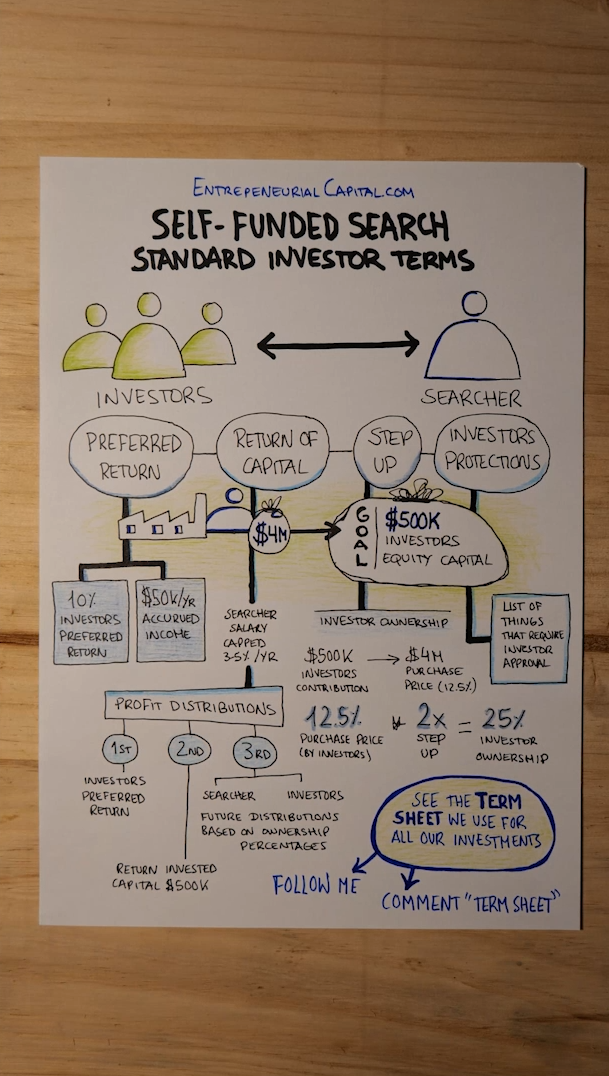 ENTREPENEURIAL CAPITAL.COM
SELF-FUNDED SEARCH
STANDARD INVESTOR TERMS
INVESTORS
SEARCHER
PREFERRED
RETURN
RETURN OF
CAPITAL
STEP
UP
INVESTORS
PROTECTIONS
$4M
GOAL
$500K
INVESTORS
EQUITY CAPITAL
10%
INVESTORS
PREFERRED
RETURN
$50K/YR
ACCURUED
INCOME
SEARCHER
SALARY
CAPPED
3-5%/YR
INVESTOR OWNERSHIP
LIST OF
THINGS
THAT REQUIRE
INVESTOR
APPROVAL
$500K
INVESTORS
CONTRIBUTION
$4M
PURCHASE
PRICE (12.5%)
PROFIT DISTRIBUTIONS
12.5%
PURCHASE PRICE
(BY INVESTORS)
2X
STEP
UP
=
25%
INVESTOR
OWNERSHIP
1ST
2ND
3RD
INVESTORS
PREFERRED
RETURN
SEARCHER INVESTORS
FUTURE DISTRIBUTIONS
BASED ON OWNERSHIP
PERCENTAGES
RETURN INVESTED
CAPITAL $500K
SEE THE TERM
SHEET WE USE FOR
ALL OUR INVESTMENTS
FOLLOW ME
COMMENT "TERM SHEET"